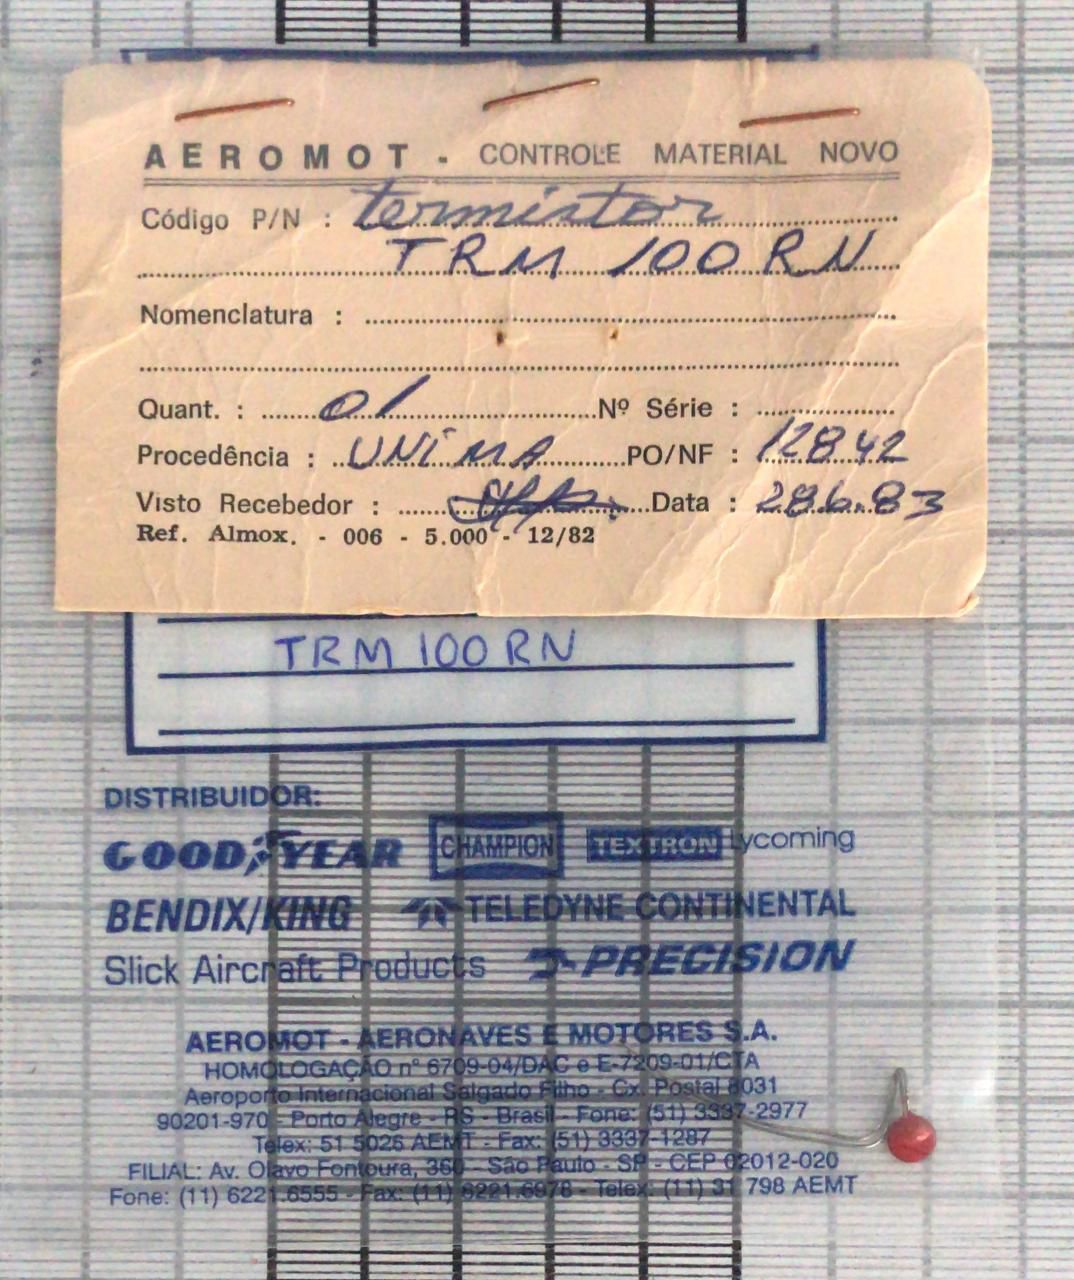 AEROMOT - CONTROLE MATERIAL NOVO
Código P/N : termistor
TRM 100 RN
Nomenclatura :
Quant. : 01 Nº Série :
Procedência : UNIMA PO/NF : 12842
Visto Recebedor : Data : 28.6.83
Ref. Almox. - 006 - 5.000 - 12/82
TRM 100 RN
DISTRIBUIDOR:
GOODYEAR CHAMPION TEXTRON Lycoming
BENDIX/KING TELEDYNE CONTINENTAL
Slick Aircraft Products PRECISION
AEROMOT - AERONAVES E MOTORES S.A.
HOMOLOGAÇÃO nº 6709-04/DAC e E-7209-01/CTA
Aeroporto Internacional Salgado Filho - Cx. Postal 8031
90201-970 - Porto Alegre - RS - Brasil - Fone: (51) 3337-2977
Telex: 51 5026 AEMT - Fax: (51) 3337-1287
FILIAL: Av. Olavo Fontoura, 360 - São Paulo - SP - CEP 02012-020
Fone: (11) 6221.6555 - Fax: (11) 6221.6978 - Telex: (11) 31 798 AEMT